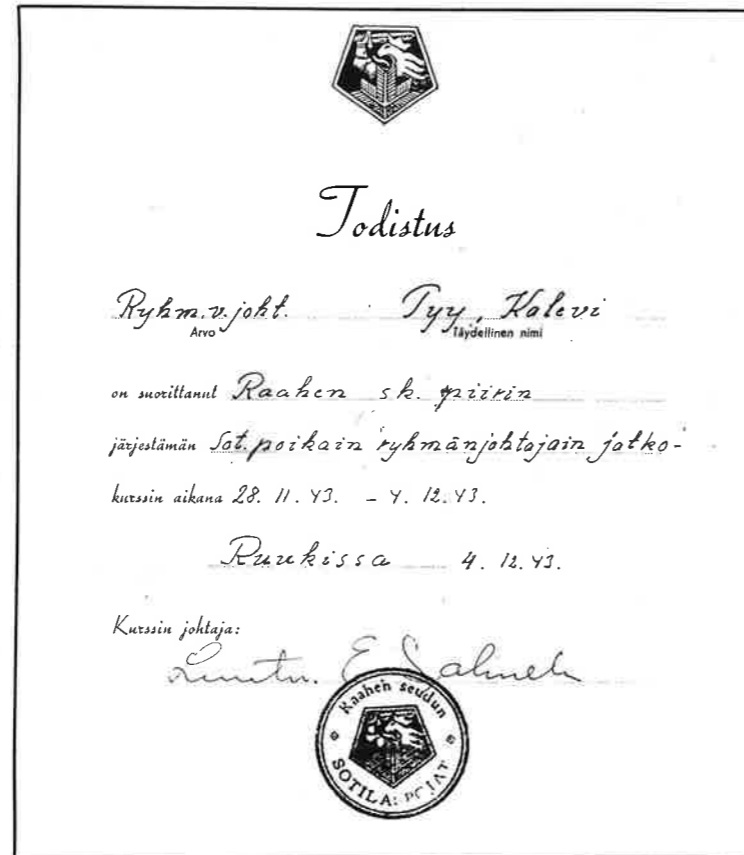 Todistus
Ryhm.v.joht. Tyy, Kalevi
Arvo Täydellinen nimi
on suorittanut Raahen sk. piirin
järjestämän Sot.poikain ryhmänjohtajain jatko-
kurssin aikana 28. 11. 43. - 4. 12. 43.
Ruukissa 4. 12. 43.
Kurssin johtaja:
Luutn. E
Raahen seudun
SOTILASPOJAT